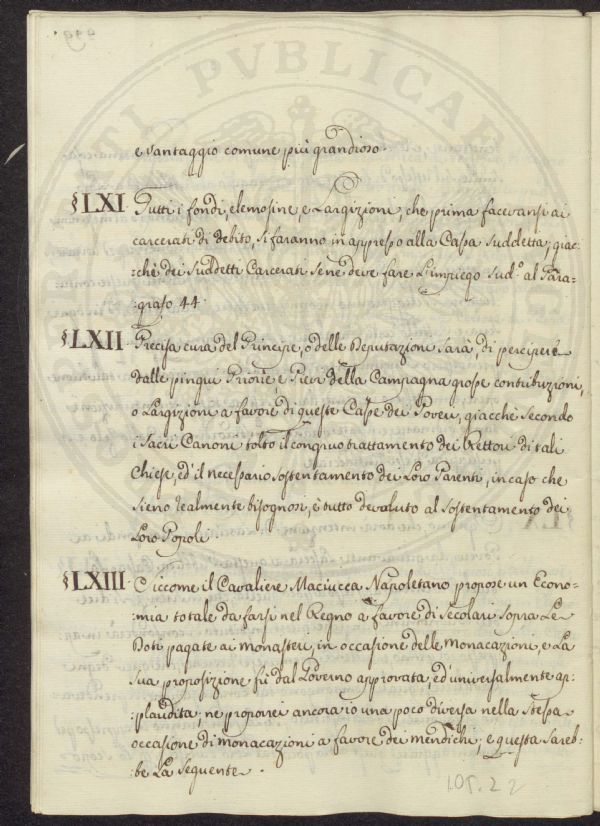 e vantaggio comune più grandioso.
§LXI. Tutti i fondi, elemosine, e Largizioni, che prima facevansi ai
carcerati di debito, si faranno in appresso alla Cassa suddetta, giac-
:chè dei suddetti Carcerati se ne deve fare L'impiego sud.º al Para-
:grafo 44.
§LXII. Precisa cura del Principe, o delle Deputazioni sarà, di percipere
dalle pingui Priorie, e Pievi della Campagna grosse contribuzioni,
o Largizioni a favore di queste Casse dei Poveri, giacchè secondo
i Sacri Canoni tolto il congruo trattamento dei Rettori di tali
Chiese, ed' il necessario sostentamento dei Loro Parenti, in caso che
sieno realmente bisognosi, è tutto devoluto al sostentamento dei
Loro Popoli.
§LXIII. Siccome il Cavaliere Maciucca Napoletano propose un Econo-
:mia totale da farsi nel Regno a favore di Secolari sopra Le
Doti pagate ai Monasteri, in occasione delle Monacazioni, e La
sua proposizione fù dal Governo approvata, ed' universalmente ap-
:plaudita, ne proporrei ancora io una poco diversa nella stessa
occasione di Monacazioni a favore dei mendichi, e questa sareb-
:be La seguente.